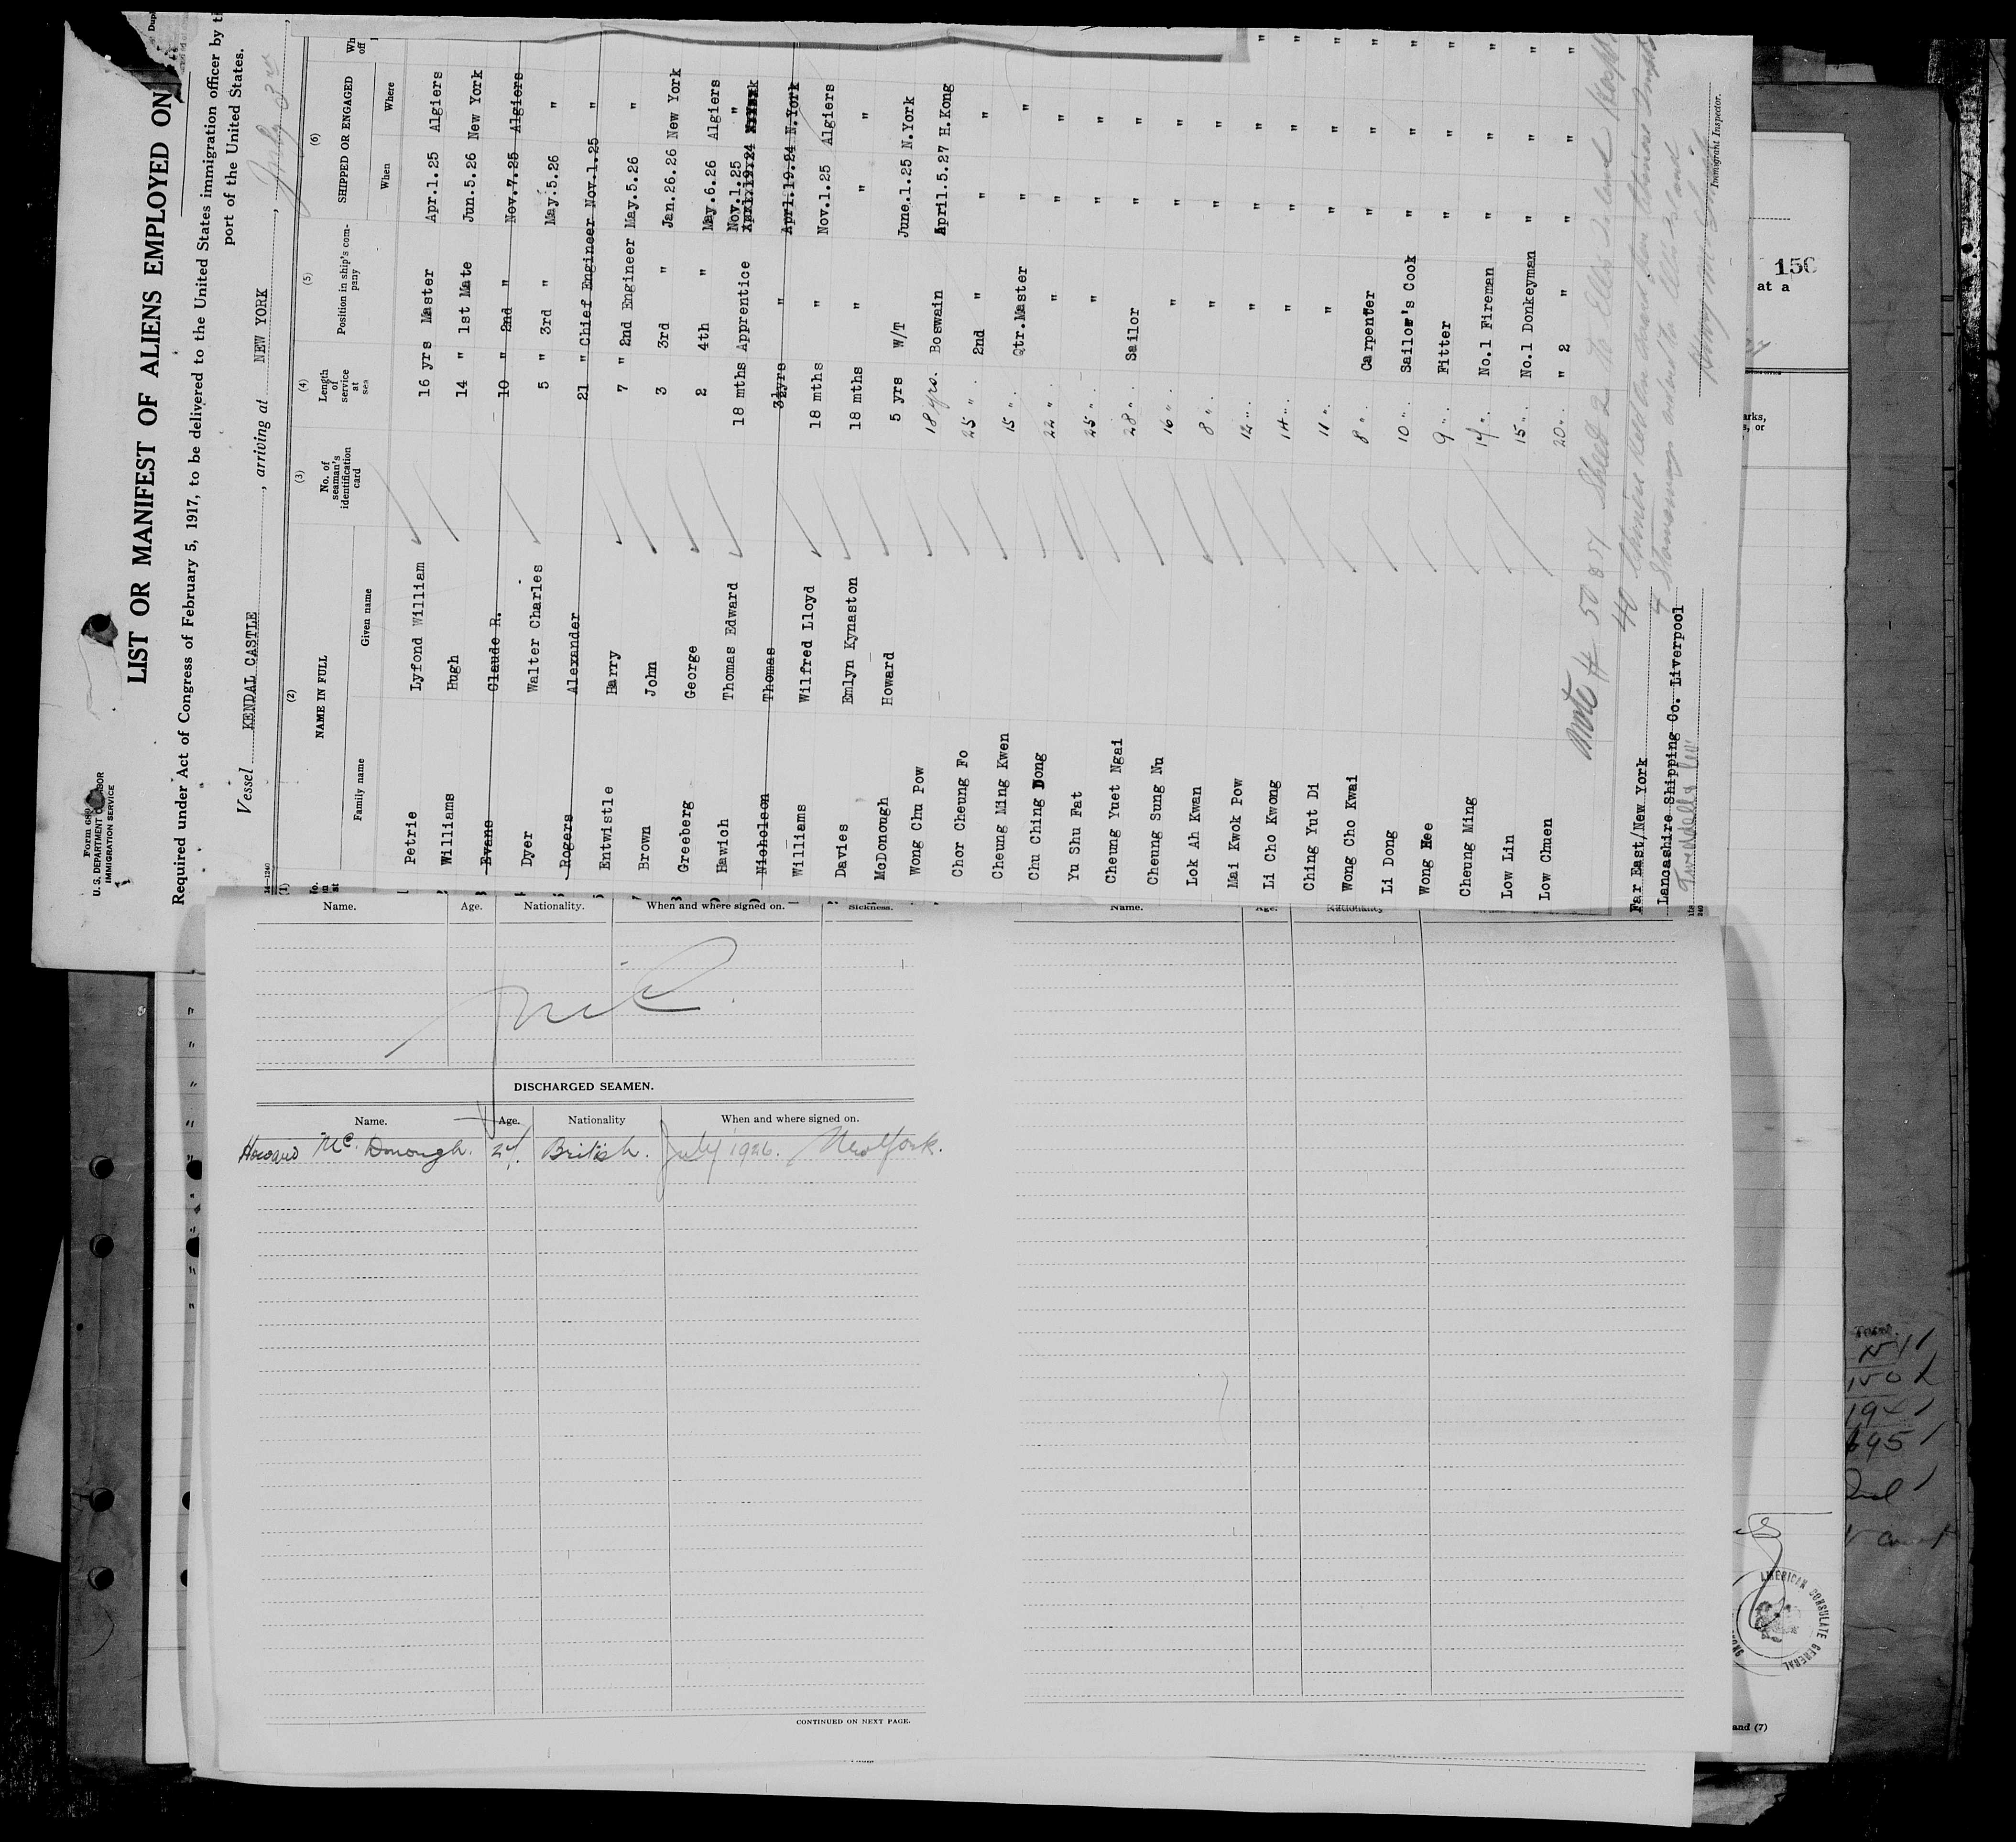 Form 680
U.S. DEPARTMENT OF LABOR
IMMIGRATION SERVICE
LIST OR MANIFEST OF ALIENS EMPLOYED ON
Required under Act of Congress of February 5, 1917, to be delivered to the United States immigration officer by
port of the United States.
Vessel KENDAL CASTLE, arriving at NEW YORK, July 3rd
14-1240
(1) (2) (3) (4) (5) (6)
NAME IN FULL No. of seaman's identification card Length of service at sea Position in ship's company SHIPPED OR ENGAGED
Family name Given name When Where
Petrie Lyfond William 16 yrs Master Apr.1.25 Algiers
Williams Hugh 14 " 1st Mate Jun.5.26 New York
Evans Claude R. 10 " 2nd " Nov.7.25 Algiers
Dyer Walter Charles 5 " 3rd " May.5.26 "
Rogers Alexander 21 " Chief Engineer Nov.1.25 "
Entwistle Harry 7 " 2nd Engineer May.5.26 "
Brown John 3 3rd " Jan.26.26 New York
Greeberg George 2 4th " May.6.26 Algiers
Hawich Thomas Edward 18 mths Apprentice Nov.1.25 "
Nicholson Thomas 3½yrs " Aprl.19.24 N.York
Williams Wilfred Lloyd 18 mths " Nov.1.25 Algiers
Davies Emlyn Kynaston 18 mths " " "
McDonough Howard 5 yrs W/T June.1.25 N.York
Wong Chu Pow 18 yrs. Boswain April.5.27 H.Kong
Chor Cheung Fo 25 ". 2nd " " "
Cheung Ming Kwen 15 ". Qtr.Master " "
Chu Ching Dong 22 ". " " "
Yu Shu Fat 25 ". " " "
Cheung Yuet Ngai 28 ". Sailor " "
Cheung Sung Nu 16 ". " " "
Lok Ah Kwan 8 ". " " "
Mai Kwok Pow 12 ". " " "
Li Cho Kwong 14 ". " " "
Ching Yut Di 11 ". " " "
Wong Cho Kwai 8 ". Carpenter " "
Li Dong 10 ". Sailor's Cook " "
Wong Hee 9 ". Fitter " "
Cheung Ming 14 ". No.1 Fireman " "
Low Lin 15 ". No.1 Donkeyman " "
Low Chuen 20 ". " 2 " " "
Note # 50 & 51 Sheet 2 to Ellis Island
40 Chinese held on board
4 Stowaways ordered to Ellis Island
Far East/New York
Lancashire Shipping Co. Liverpool
Immigrant Inspector.
Name. Age. Nationality. When and where signed on. Sickness.
Name. Age. Nationality
nil
DISCHARGED SEAMEN.
Name. Age. Nationality When and where signed on.
Howard Mc Donough. 24. British. July 1926. New York.
CONTINUED ON NEXT PAGE.
150
at a
and (7)
AMERICAN CONSULATE GENERAL